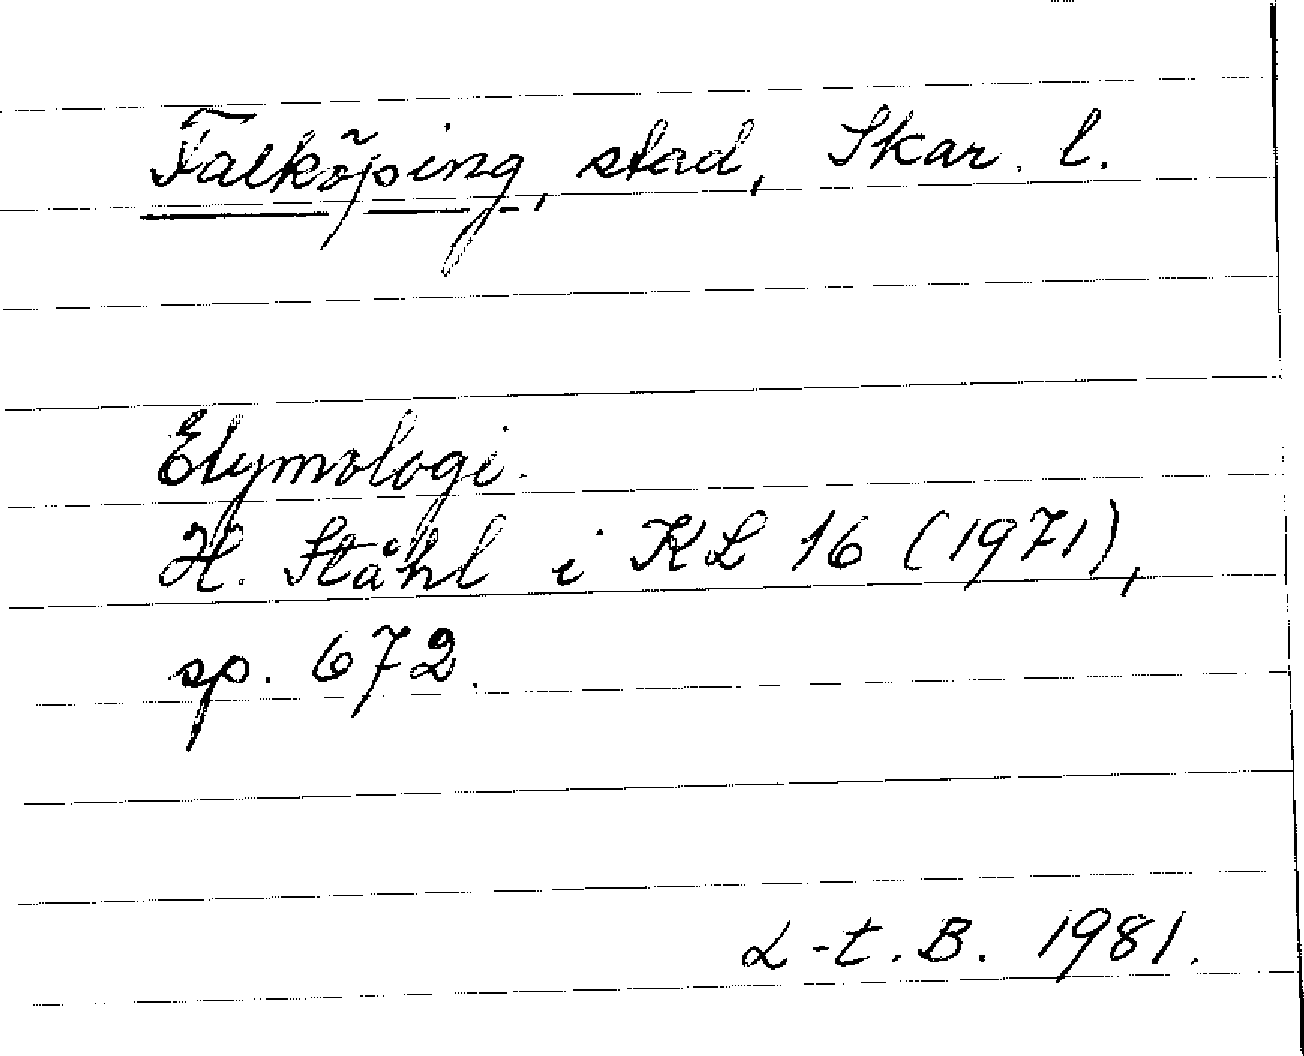 Falköping, stad, Skar. l.
Etymologi.
H. Ståhl i KL 16 (1971),
sp. 672.
L-t. B. 1981.